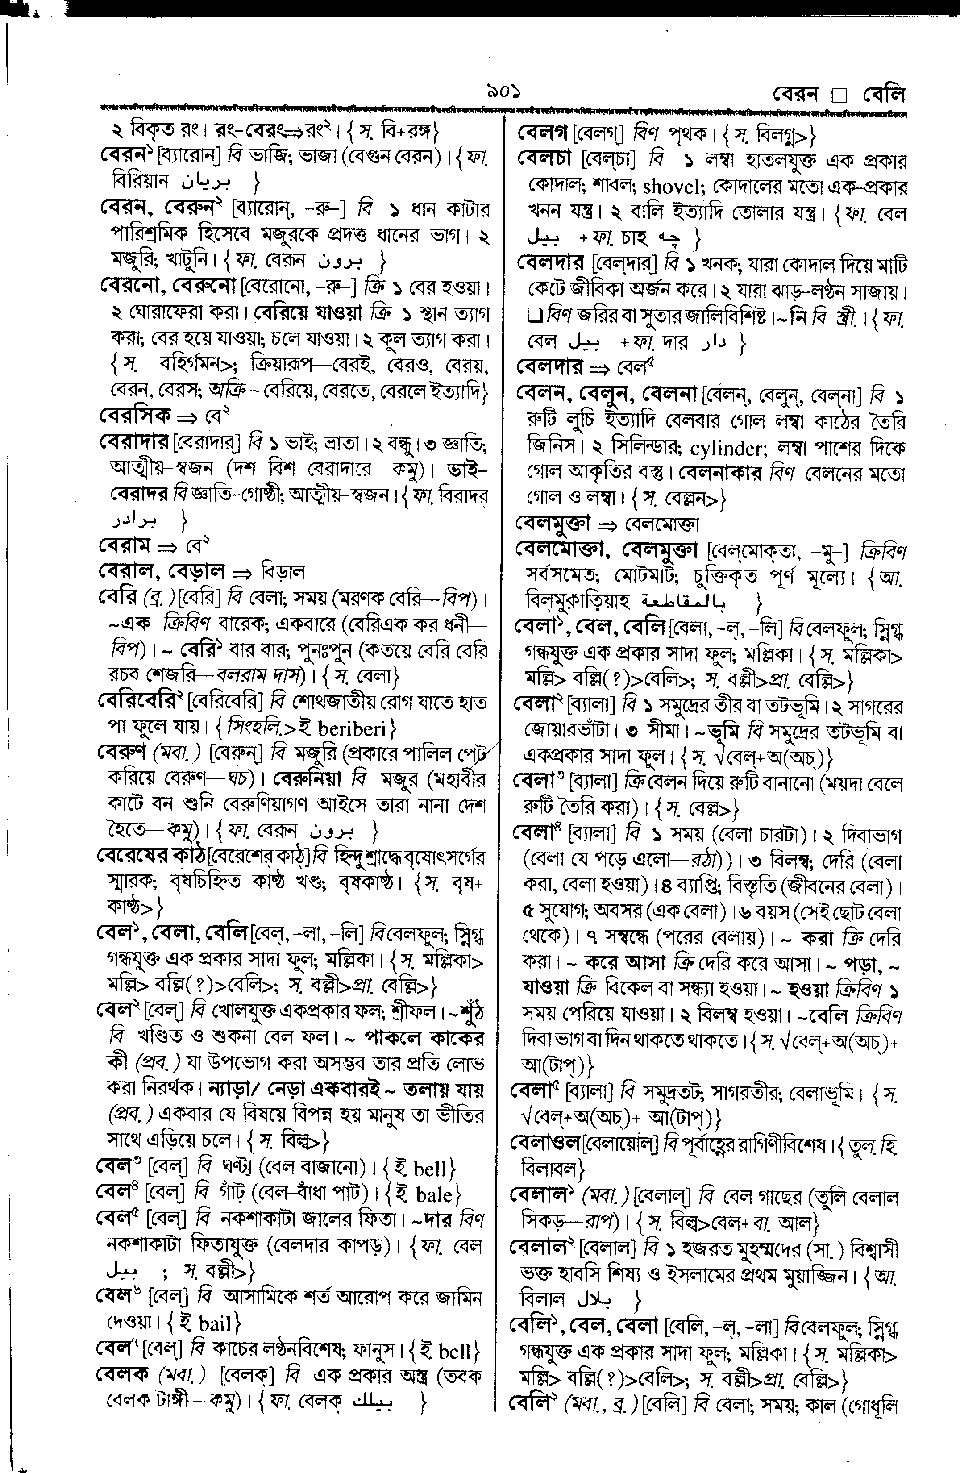 ৯০১
বেরন □ বেলি
২ বিকৃত রং। রং-বেরং⇒রং২। {স. বি+রঙ্গ}
বেরন১ [ব্যারোন্] বি ভাজি; ভাজা (বেগুন বেরন)। {ফা.
বিরিয়ান بریان }
বেরন, বেরুন২ [ব্যারোন্, -রু-] বি ১ ধান কাটার
পারিশ্রমিক হিসেবে মজুরকে প্রদত্ত ধানের ভাগ। ২
মজুরি; খাটুনি। {ফা. বেরূন برون }
বেরনো, বেরুনো [বেরোনো, -রু-] ক্রি ১ বের হওয়া।
২ ঘোরাফেরা করা। বেরিয়ে যাওয়া ক্রি ১ স্থান ত্যাগ
করা; বের হয়ে যাওয়া; চলে যাওয়া। ২ কূল ত্যাগ করা।
{স. বহির্গমন>; ক্রিয়ারূপ—বেরই, বেরও, বেরয়,
বেরন, বেরস; অক্রি – বেরিয়ে, বেরতে, বেরলে ইত্যাদি}
বেরসিক ⇒ বে২
বেরাদার [বেরাদার্] বি ১ ভাই; ভ্রাতা। ২ বন্ধু। ৩ জ্ঞাতি;
আত্মীয়-স্বজন (দশ বিশ বেরাদারে কমু)। ভাই-
বেরাদর বি জ্ঞাতি-গোষ্ঠী; আত্মীয়-স্বজন। {ফা. বিরাদর
برادر }
বেরাম ⇒ বে২
বেরাল, বেড়াল ⇒ বিড়াল
বেরি (ব্র.) [বেরি] বি বেলা; সময় (মরণক বেরি—বিপ)।
~এক ক্রিবিণ বারেক; একবারে (বেরিএক কর ধনী—
বিপ)। ~ বেরি১ বার বার; পুনঃপুন (কতয়ে বেরি বেরি
রচব শেজরি—বলরাম দাস)। {স. বেলা}
বেরিবেরি২ [বেরিবেরি] বি শোথজাতীয় রোগ যাতে হাত
পা ফুলে যায়। {সিংহলি.>ই beriberi}
বেরুণ (মবা.) [বেরুন্] বি মজুরি (প্রকারে পালিল পেট
করিয়ে বেরুণ—ঘচ)। বেরুনিয়া বি মজুর (মহাবীর
কাটে বন শুনি বেরুণিয়াগণ আইসে তারা নানা দেশ
হৈতে—কমু)। {ফা. বেরূন برون }
বেরেষের কাঠ [বেরেশের্ কাঠ্] বি হিন্দুশ্রাদ্ধে বৃষোৎসর্গের
স্মারক; বৃষচিহ্নিত কাষ্ঠ খণ্ড; বৃষকাষ্ঠ। {স. বৃষ+
কাষ্ঠ>}
বেল১, বেলা, বেলি [বেল্, -লা, -লি] বি বেলফুল; স্নিগ্ধ
গন্ধযুক্ত এক প্রকার সাদা ফুল; মল্লিকা। {স. মল্লিকা>
মল্লি> বল্লি(?)>বেলি>; স. বল্লী>প্রা. বেল্লি>}
বেল২ [বেল্] বি খোলযুক্ত একপ্রকার ফল; শ্রীফল। ~শুঁঠ
বি খণ্ডিত ও শুকনা বেল ফল। ~ পাকলে কাকের
কী (প্রব.) যা উপভোগ করা অসম্ভব তার প্রতি লোভ
করা নিরর্থক। ন্যাড়া/ নেড়া একবারই ~ তলায় যায়
(প্রব.) একবার যে বিষয়ে বিপন্ন হয় মানুষ তা ভীতির
সাথে এড়িয়ে চলে। {স. বিল্ব>}
বেল৩ [বেল্] বি ঘণ্টা (বেল বাজানো)। {ই bell}
বেল৪ [বেল্] বি গাঁট (বেল-বাঁধা পাট)। {ই bale}
বেল৫ [বেল্] বি নকশাকাটা জালের ফিতা। ~দার বিণ
নকশাকাটা ফিতাযুক্ত (বেলদার কাপড়)। {ফা. বেল
بیل ; স. বল্লী>}
বেল৬ [বেল্] বি আসামিকে শর্ত আরোপ করে জামিন
দেওয়া। {ই bail}
বেল৭ [বেল্] বি কাচের লণ্ঠনবিশেষ; ফানুস। {ই bell}
বেলক (মবা.) [বেলক্] বি এক প্রকার অস্ত্র (তবক
বেলক টাঙ্গী – কমু)। {ফা. বেলক্ بیلك }
বেলগ [বেলগ্] বিণ পৃথক। {স. বিলগ্ন>}
বেলচা [বেল্‌চা] বি ১ লম্বা হাতলযুক্ত এক প্রকার
কোদাল; শাবল; shovel; কোদালের মতো এক-প্রকার
খনন যন্ত্র। ২ বালি ইত্যাদি তোলার যন্ত্র। {ফা. বেল
بیل + ফা. চাহ چه }
বেলদার [বেল্‌দার্] বি ১ খনক; যারা কোদাল দিয়ে মাটি
কেটে জীবিকা অর্জন করে। ২ যারা ঝাড়-লণ্ঠন সাজায়।
❏ বিণ জরির বা সুতার জালিবিশিষ্ট। ~নি বি স্ত্রী.। {ফা.
বেল بیل + ফা. দার دار }
বেলদার ⇒ বেল৫
বেলন, বেলুন, বেলনা [বেলন্, বেলুন্, বেল্‌না] বি ১
রুটি লুচি ইত্যাদি বেলবার গোল লম্বা কাঠের তৈরি
জিনিস। ২ সিলিন্ডার; cylinder; লম্বা পাশের দিকে
গোল আকৃতির বস্তু। বেলনাকার বিণ বেলনের মতো
গোল ও লম্বা। {স. বেল্লন>}
বেলমুক্তা ⇒ বেলমোক্তা
বেলমোক্তা, বেলমুক্তা [বেল্‌মোক্‌তা, -মু-] ক্রিবিণ
সর্বসমেত; মোটমাট; চুক্তিকৃত পূর্ণ মূল্যে। {আ.
বিল্‌মুকাত়িয়াহ بالمقاطعة }
বেলা১, বেল, বেলি [বেলা, -ল্, -লি] বি বেলফুল; স্নিগ্ধ
গন্ধযুক্ত এক প্রকার সাদা ফুল; মল্লিকা। {স. মল্লিকা>
মল্লি> বল্লি(?)>বেলি>; স. বল্লী>প্রা. বেল্লি>}
বেলা২ [ব্যালা] বি ১ সমুদ্রের তীর বা তটভূমি। ২ সাগরের
জোয়ারভাঁটা। ৩ সীমা। ~ভূমি বি সমুদ্রের তটভূমি বা
একপ্রকার সাদা ফুল। {স. √বেল্+অ(অচ্)}
বেলা৩ [ব্যালা] ক্রি বেলন দিয়ে রুটি বানানো (ময়দা বেলে
রুটি তৈরি করা)। {স. বেল্ল>}
বেলা৪ [ব্যালা] বি ১ সময় (বেলা চারটা)। ২ দিবাভাগ
(বেলা যে পড়ে এলো—রঠা))। ৩ বিলম্ব; দেরি (বেলা
করা, বেলা হওয়া)। ৪ ব্যাপ্তি; বিস্তৃতি (জীবনের বেলা)।
৫ সুযোগ; অবসর (এক বেলা)। ৬ বয়স (সেই ছোট বেলা
থেকে)। ৭ সম্বন্ধে (পরের বেলায়)। ~ করা ক্রি দেরি
করা। ~ করে আসা ক্রি দেরি করে আসা। ~ পড়া, ~
যাওয়া ক্রি বিকেল বা সন্ধ্যা হওয়া। ~ হওয়া ক্রিবিণ ১
সময় পেরিয়ে যাওয়া। ২ বিলম্ব হওয়া। ~বেলি ক্রিবিণ
দিবা ভাগ বা দিন থাকতে থাকতে। {স. √বেল্+অ(অচ্)+
আ(টাপ্)}
বেলা৫ [ব্যালা] বি সমুদ্রতট; সাগরতীর; বেলাভূমি। {স.
√বেল্+অ(অচ্)+ আ(টাপ্)}
বেলাওল [বেলায়োল্] বি পূর্বাহ্নের রাগিণীবিশেষ। {তুল. হি.
বিলাবল}
বেলাল১ (মবা.) [বেলাল্] বি বেল গাছের (তুলি বেলাল
সিকড়—রাপ)। {স. বিল্ব>বেল+ বা. আল}
বেলাল২ [বেলাল্] বি ১ হজরত মুহম্মদের (সা.) বিশ্বাসী
ভক্ত হাবসি শিষ্য ও ইসলামের প্রথম মুয়াজ্জিন। {আ.
বিলাল بلال }
বেলি১, বেল, বেলা [বেলি, -ল্, -লা] বি বেলফুল; স্নিগ্ধ
গন্ধযুক্ত এক প্রকার সাদা ফুল; মল্লিকা। {স. মল্লিকা>
মল্লি> বল্লি(?)>বেলি>; স. বল্লী>প্রা. বেল্লি>}
বেলি২ (মবা., ব্র.) [বেলি] বি বেলা; সময়; কাল (গোধূলি